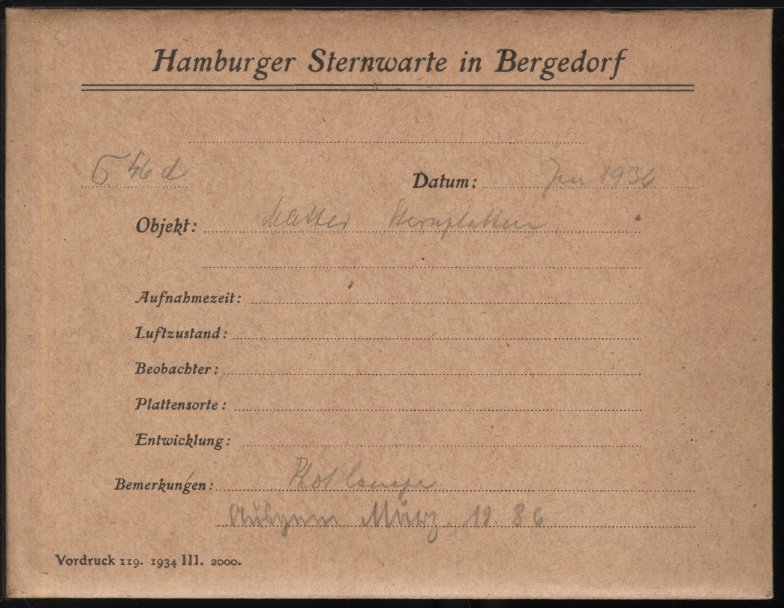 Hamburger Sternwarte in Bergedorf
46 d
Datum: 1936
Objekt: Sternplatten
Aufnahmezeit:
Luftzustand:
Beobachter:
Plattensorte:
Entwicklung:
Bemerkungen:
März
Vordruck 119. 1934 III. 2000.